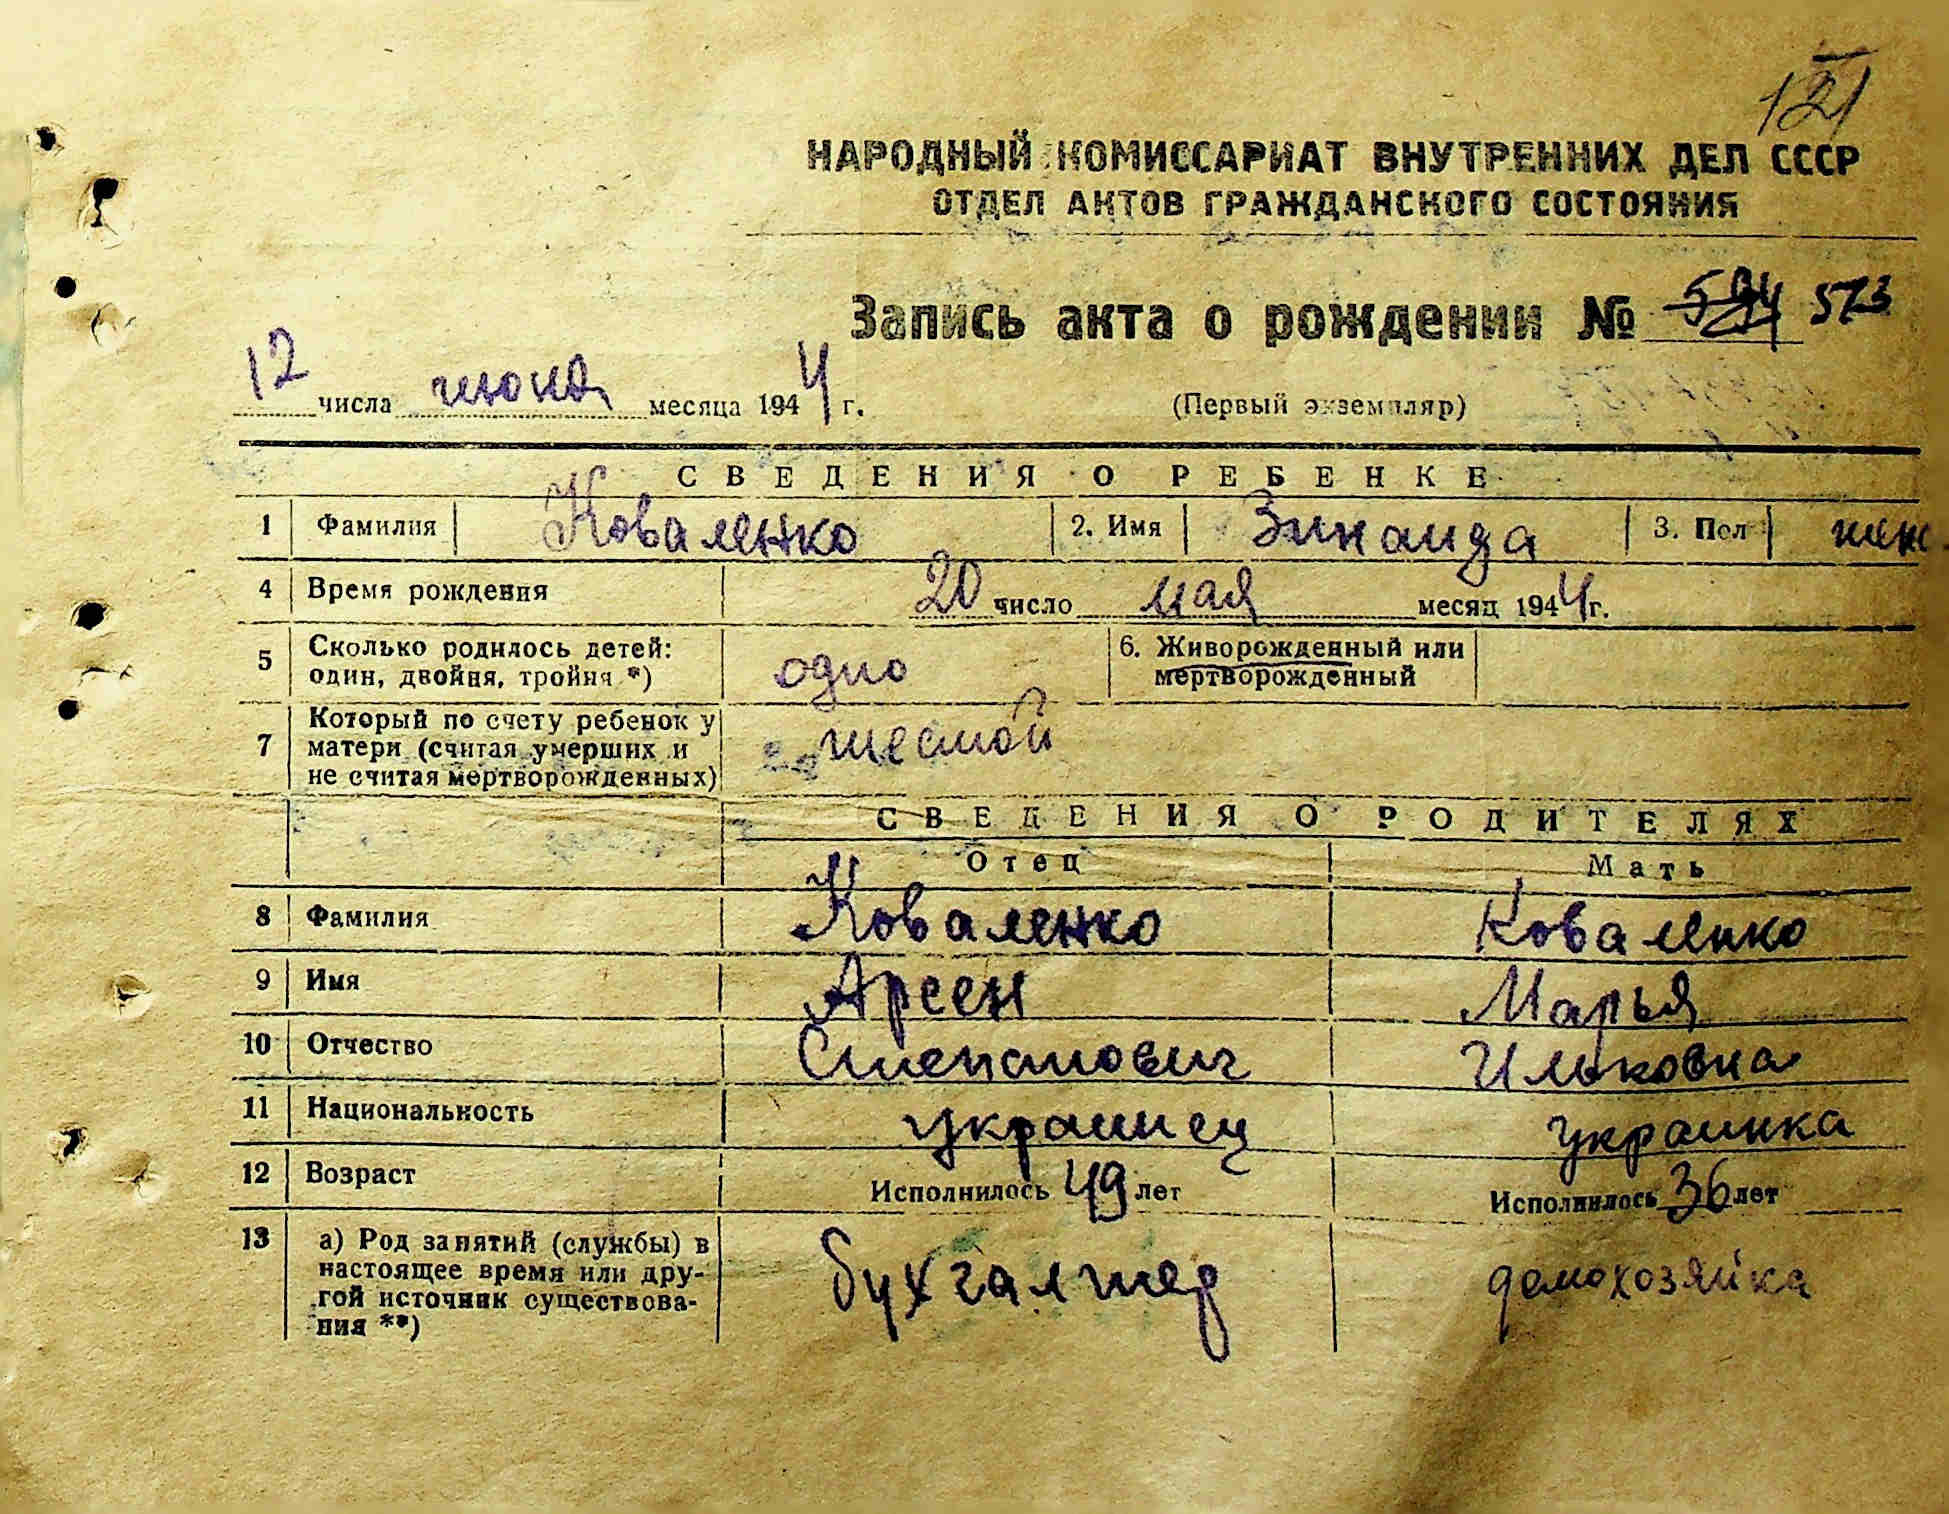 121
НАРОДНЫЙ КОМИССАРИАТ ВНУТРЕННИХ ДЕЛ СССР
ОТДЕЛ АКТОВ ГРАЖДАНСКОГО СОСТОЯНИЯ
Запись акта о рождении № 573
12 числа июня месяца 1944 г. (Первый экземпляр)
СВЕДЕНИЯ О РЕБЕНКЕ
1 Фамилия Коваленко 2. Имя Зинаида 3. Пол женс
4 Время рождения 20 число мая месяц 1944 г.
5 Сколько родилось детей: один, двойня, тройня *) одно 6. Живорожденный или мертворожденный
7 Который по счету ребенок у матери (считая умерших и не считая мертворожденных) шестой
СВЕДЕНИЯ О РОДИТЕЛЯХ
Отец Мать
8 Фамилия Коваленко Коваленко
9 Имя Арсен Марья
10 Отчество Степанович Ильковна
11 Национальность украинец украинка
12 Возраст Исполнилось 49 лет Исполнилось 36 лет
13 а) Род занятий (службы) в настоящее время или другой источник существования **) бухгалтер домохозяйка